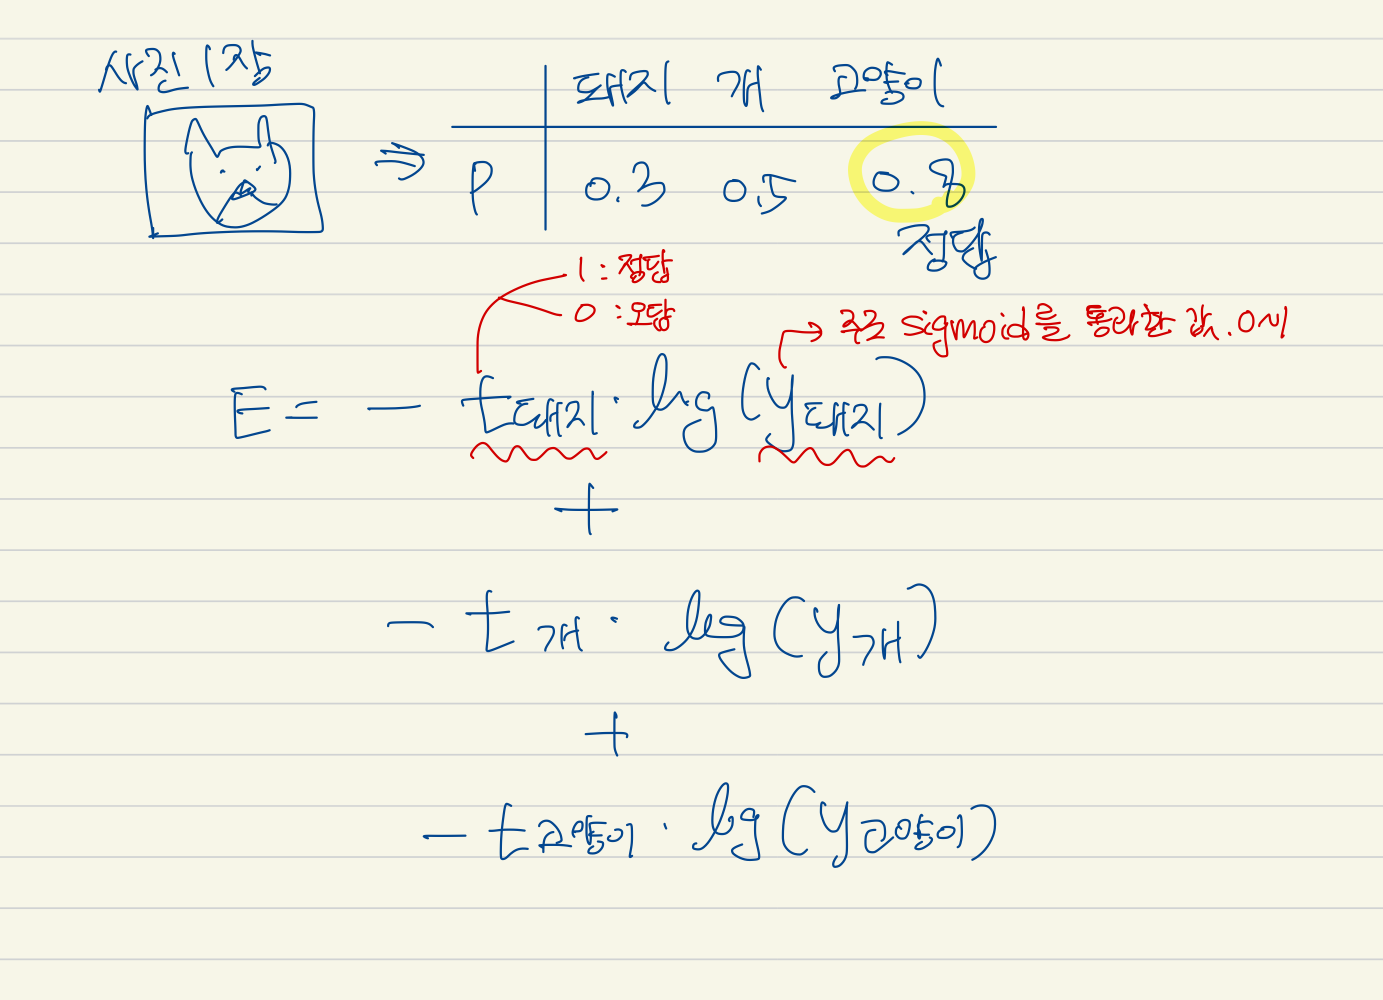 사진 1장
돼지 개 고양이
P 0.3 0.5 0.8
정답
1 : 정답
0 : 오답
주로 sigmoid를 통과한 값. 0~1
E = - t돼지 · log (y돼지)
+
- t개 · log (y개)
+
- t고양이 · log (y고양이)